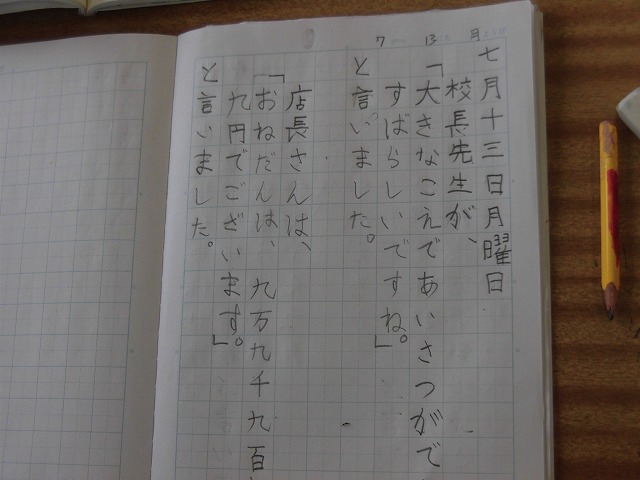 7 13 月
七月十三日月曜日
校長先生が、
「大きなこえであいさつがで
すばらしいですね。」
と言いました。
店長さんは、
「おねだんは、九万九千九百
九円でございます。」
と言いました。